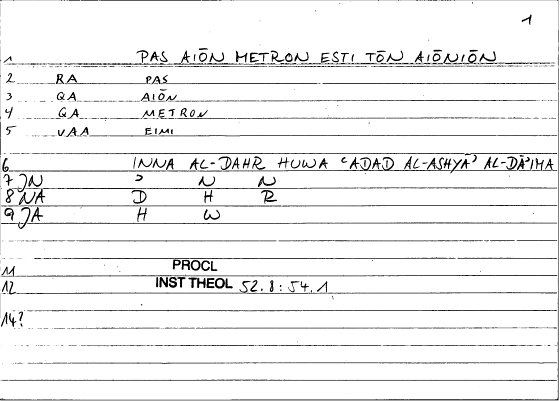 1
1 PAS AIŌN METRON ESTI TŌN AIŌNIŌN
2 RA PAS
3 QA AIŌN
4 QA METRON
5 VAA EIMI
6 INNA AL-DAHR HUWA ʿADAD AL-ASHYĀʾ AL-DĀʾIMA
7 JN ʾ N N
8 NA D H R
9 JA H W
11 PROCL
12 INST THEOL 52.8:54.1
14?